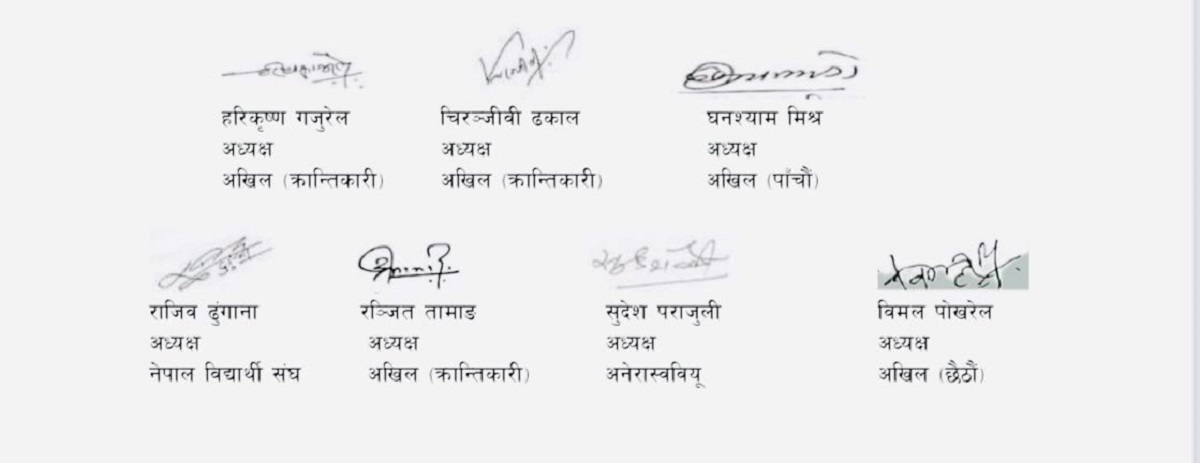 हरिकृष्ण गजुरेल
अध्यक्ष
अखिल (क्रान्तिकारी)
चिरञ्जीवी ढकाल
अध्यक्ष
अखिल (क्रान्तिकारी)
घनश्याम मिश्र
अध्यक्ष
अखिल (पाँचौं)
राजिव ढुंगाना
अध्यक्ष
नेपाल विद्यार्थी संघ
रञ्जित तामाङ
अध्यक्ष
अखिल (क्रान्तिकारी)
सुदेश पराजुली
अध्यक्ष
अनेरास्ववियू
विमल पोखरेल
अध्यक्ष
अखिल (छैठौं)